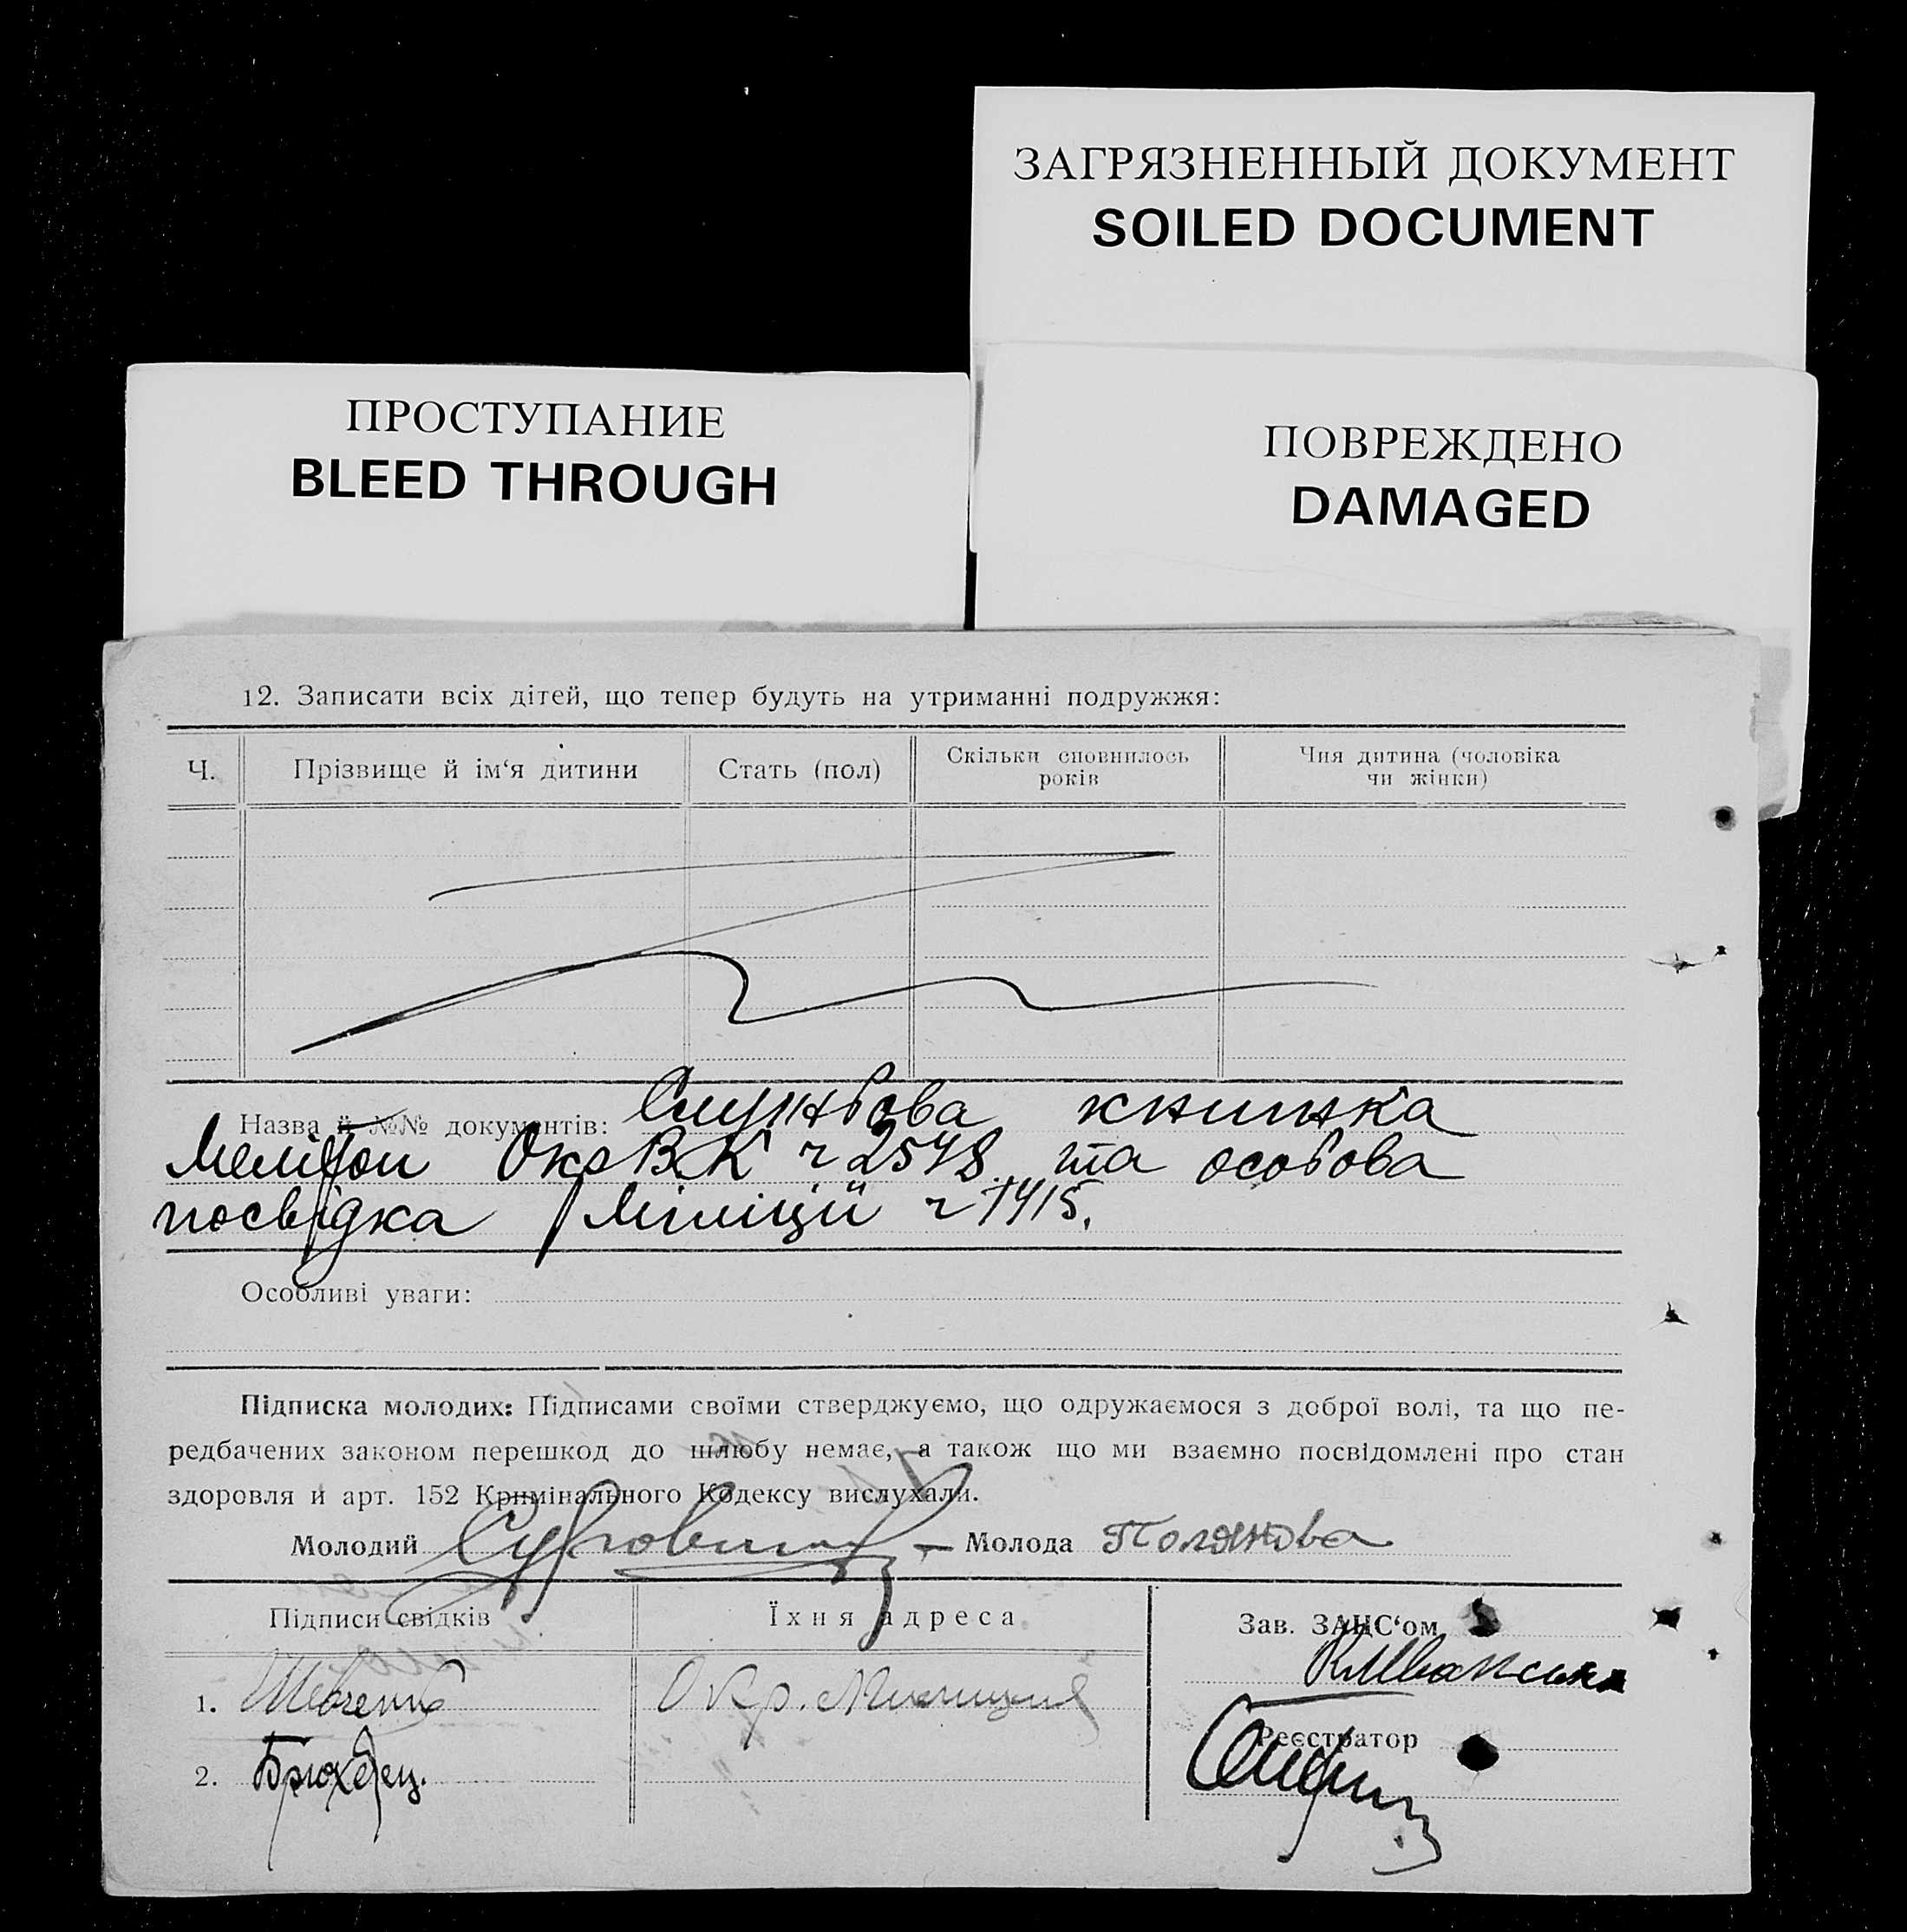 ЗАГРЯЗНЕННЫЙ ДОКУМЕНТ
SOILED DOCUMENT
ПРОСТУПАНИЕ
BLEED THROUGH
ПОВРЕЖДЕНО
DAMAGED
12. Записати всіх дітей, що тепер будуть на утриманні подружжя:
Ч.
Прізвище й ім‘я дитини
Стать (пол)
Скільки сповнилось
років
Чия дитина (чоловіка
чи жінки)
Назва й №№ документів: Службова книжка
Мелітоп ОкрВК ч 2578 та особова
посвідка Міліції ч 1415.
Особливі уваги:
Підписка молодих: Підписами своїми стверджуємо, що одружаємося з доброї волі, та що пе-
редбачених законом перешкод до шлюбу немає, а також що ми взаємно посвідомлені про стан
здоровля й арт. 152 Кримінального Кодексу вислухали.
Молодий
Молода Полянова
Підписи свідків
Їхня адреса
Зав. ЗАНС‘ом
1. Шевченко
Окр.
Реєстратор
2.